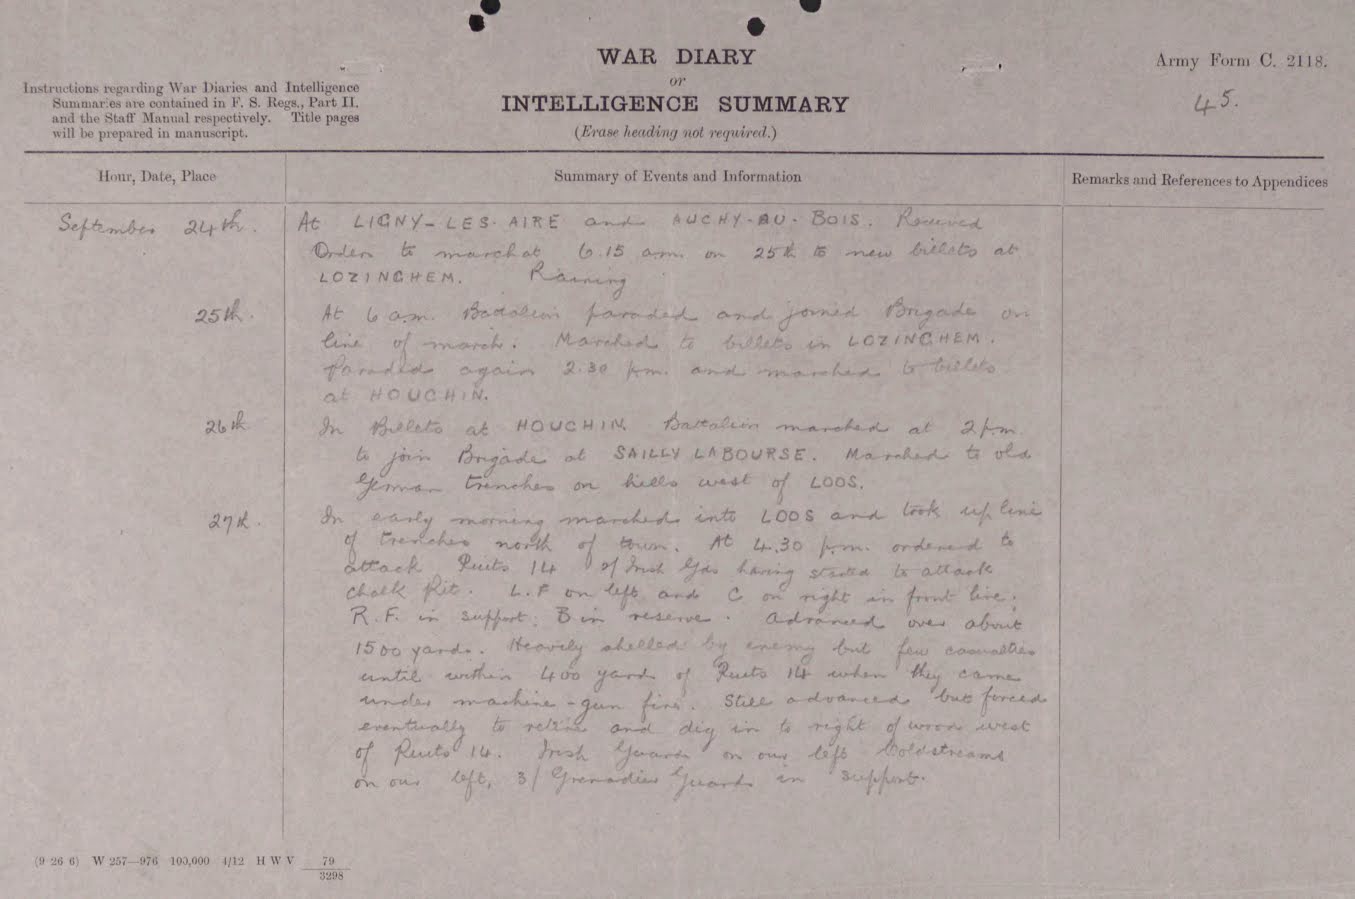 WAR DIARY
or
INTELLIGENCE SUMMARY
(Erase heading not required.)
Army Form C. 2118.
45.
Instructions regarding War Diaries and Intelligence
Summaries are contained in F. S. Regs., Part II.
and the Staff Manual respectively. Title pages
will be prepared in manuscript.
Hour, Date, Place
Summary of Events and Information
Remarks and References to Appendices
September 24th.
At LIGNY-LES-AIRE and AUCHY-AU-BOIS. Received
Orders to march at 6.15 a.m. on 25th to new billets at
LOZINGHEM. Raining
25th.
At 6 a.m. Battalion paraded and joined Brigade on
line of march. Marched to billets in LOZINGHEM.
Paraded again 2.30 p.m. and marched to billets
at HOUCHIN.
26th
In Billets at HOUCHIN. Battalion marched at 2 p.m.
to join Brigade at SAILLY LABOURSE. Marched to old
German trenches on hills west of LOOS.
27th.
In early morning marched into LOOS and took up line
of trenches north of town. At 4.30 p.m. ordered to
attack Puits 14 2/Irish Gds having started to attack
Chalk Pit. L.F on left and C on right in front line.
R.F. in support; B in reserve. Advanced over about
1500 yards. Heavily shelled by enemy but few casualties
until within 400 yards of Puits 14 when they came
under machine-gun fire. Still advanced but forced
eventually to retire and dig in to right of wood west
of Puits 14. Irish Guards on our left Coldstreams
on our left, 3/ Grenadier Guards in support.
(9 26 6) W 257—976 100,000 4/12 H W V 79
3298